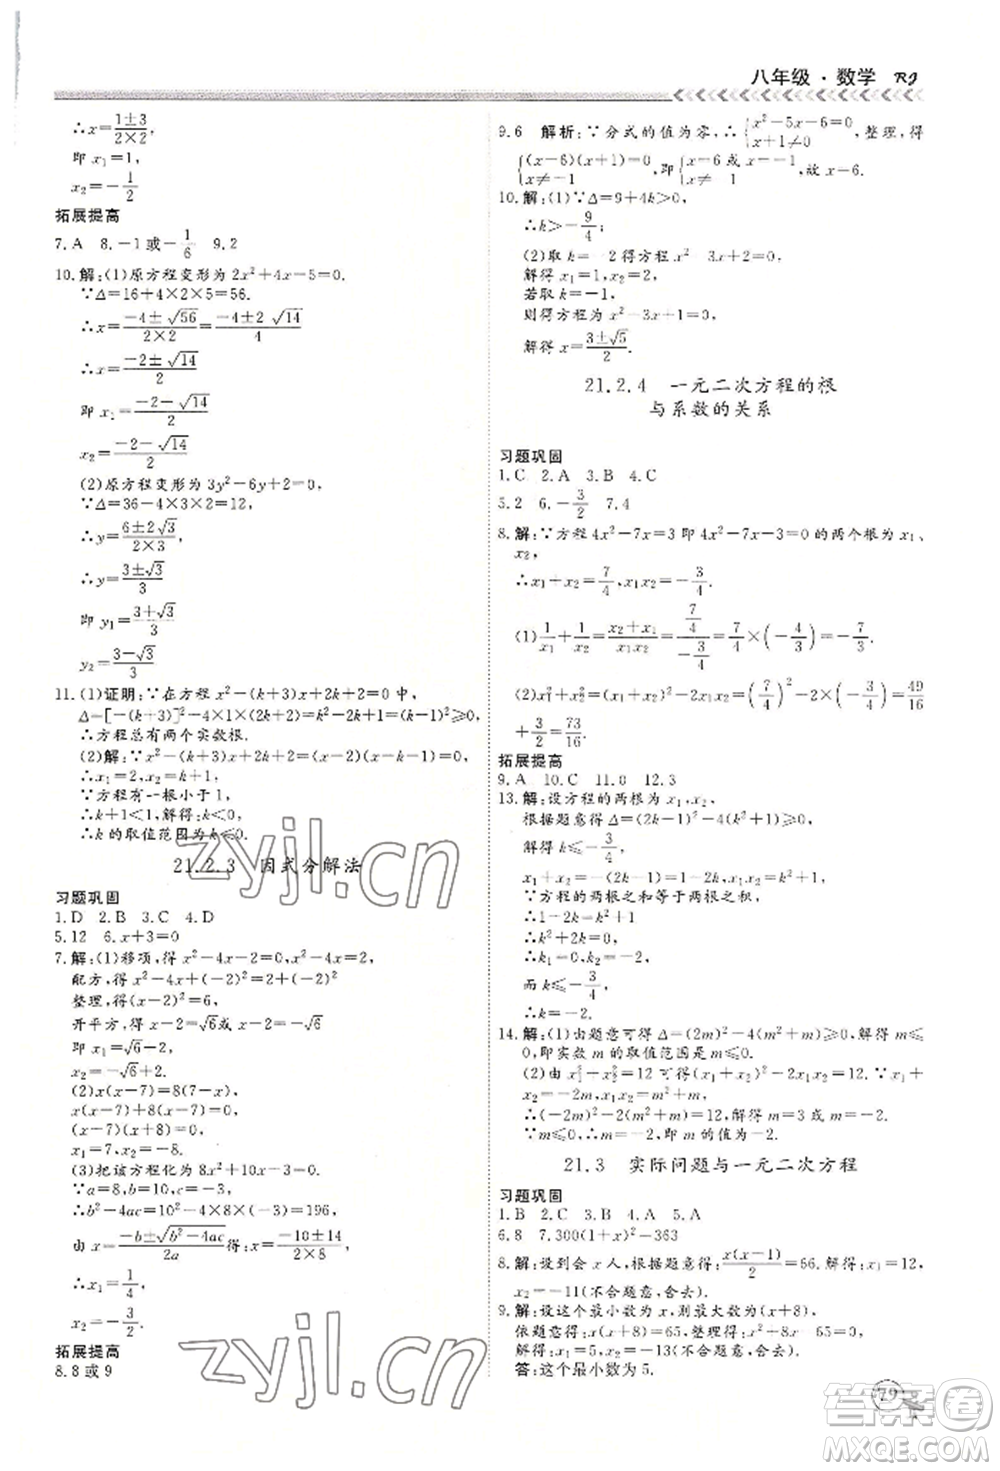 八年级·数学 RJ
∴x=\frac{1±3}{2×2}
即 x₁=1,
x₂=-\frac{1}{2}
拓展提高
7.A 8.-1或-\frac{1}{6} 9.2
10.解:(1)原方程变形为 2x²+4x-5=0.
∵Δ=16+4×2×5=56.
∴x=\frac{-4±√56}{2×2}=\frac{-4±2√14}{4}
∴x=\frac{-2±√14}{2}
即 x₁=\frac{-2-√14}{2}
x₂=\frac{-2+√14}{2}
(2)原方程变形为 3y²-6y+2=0,
∵Δ=36-4×3×2=12.
∴y=\frac{6±2√3}{2×3},
∴y=\frac{3±√3}{3}
即 y₁=\frac{3+√3}{3}
y₂=\frac{3-√3}{3}
11.(1)证明:∵在方程 x²-(k+3)x+2k+2=0 中,
Δ=[-(k+3)]²-4×1×(2k+2)=k²-2k+1=(k-1)²≥0,
∴方程总有两个实数根.
(2)解:∵x²-(k+3)x+2k+2=(x-2)(x-k-1)=0,
∴x₁=2,x₂=k+1,
∵方程有一根小于1,
∴k+1<1,解得:k<0,
∴k 的取值范围为 k<0.
21.2.3 因式分解法
习题巩固
1.D 2.B 3.C 4.D
5.12 6.x+3=0
7.解:(1)移项,得 x²-4x+(-2)²=2+(-2)²,
配方,得 x²-4x+(-2)²=2+(-2)²,
整理,得(x-2)²=6,
开平方,得 x-2=√6或 x-2=-√6
即 x₁=2+√6,
x₂=-√6+2.
(2)x(x-7)=8(7-x),
x(x-7)+8(x-7)=0,
(x-7)(x+8)=0,
x₁=7,x₂=-8.
(3)把该方程化为 8x²+10x-3=0,
∵a=8,b=10,c=-3,
∴b²-4ac=10²-4×8×(-3)=196,
由 x=\frac{-b±√b²-4ac}{2a}得:x=\frac{-10±14}{16}
∴x₁=\frac{1}{4}
x₂=-\frac{3}{2}.
拓展提高
8.8 或 9
9.6 解析:∵分式的值为零,∴{x²-5x-6=0, x+1≠0,整理,得
{(x-6)(x+1)=0, x≠-1,即{x=6 或 x=-1, x≠-1,故 x=6.
10.解:(1)∵Δ=9+4k>0,
∴k>-\frac{9}{4};
(2)取 k=-2,得方程 x²-3x+2=0,
解得 x₁=1,x₂=2.
若取 k=-1,
则得方程为 x²-3x+1=0,
解得 x=\frac{3±√5}{2}.
21.2.4 一元二次方程的根
与系数的关系
习题巩固
1.C 2.A 3.B 4.C
5.2 6.-\frac{3}{2} 7.4
8.解:∵方程 4x²-7x=3 即 4x²-7x-3=0 的两个根为 x₁、
x₂,
∴x₁+x₂=\frac{7}{4},x₁x₂=-\frac{3}{4}
(1)\frac{1}{x₁}+\frac{1}{x₂}=\frac{x₂+x₁}{x₁x₂}=\frac{\frac{7}{4}}{-\frac{3}{4}}=\frac{7}{4}×(-\frac{4}{3})=-\frac{7}{3}.
(2)x₁²+x₂²=(x₁+x₂)²-2x₁x₂=(\frac{7}{4})²-2×(-\frac{3}{4})=\frac{49}{16}
+\frac{3}{2}=\frac{73}{16}.
拓展提高
9.A 10.C 11.0 12.3
13.解:设方程的两根为 x₁,x₂,
根据题意得 Δ=(2k-1)²-4(k²+1)≥0,
解得 k≤-\frac{3}{4},
x₁+x₂=-(2k-1)=1-2k,x₁x₂=k²+1,
∵方程的两根之和等于两根之积,
∴1-2k=k²+1
∴k²+2k=0,
∴k₁=0,k₂=-2,
而 k≤-\frac{3}{4},
∴k=-2.
14.解:(1)由题意可得 Δ=(2m)²-4(m²+m)≥0,解得 m≤
0,即实数 m 的取值范围是 m≤0.
(2)由 x₁²+x₂²=12 可得(x₁+x₂)²-2x₁x₂=12.∵x₁+
x₂=-2m,x₁x₂=m²+m,
∴(-2m)²-2(m²+m)=12,∴m=3 或 m=-2.
∵m≤0,∴m=-2.
21.3 实际问题与一元二次方程
习题巩固
1.B 2.C 3.B 4.A 5.A
6.8 7.300(1+x)²=363
8.解:设到会 x 人,根据题意得:\frac{x(x-1)}{2}=66,解得 x₁=12,
x₂=-11(不合题意,舍去).
9.解:设这个最小数为 x,则最大数为(x+8),
依题意得:x(x+8)=65,整理得:x²+8x-65=0,
解得:x₁=5,x₂=-13(不合题意,舍去).
答:这个最小数为 5.
79
zyjl.cn
zyjl.cn
答案圈
MXQE.COM